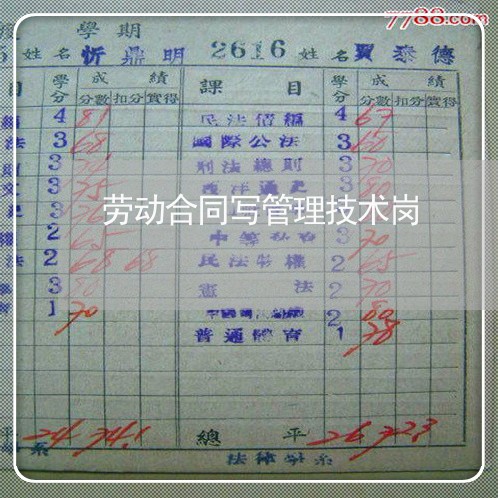 7788.com
度 學期
5 姓名 忻鼎明 2616 姓名 賈泰德
目 學分 成績 課目 學分 成績
分數 扣分 實得 分數 扣分 實得
4 81 民法債編 4 67
法 3 68 國際公法 3 60
3 刑法總則 3 70
3 75 西洋通史 3 80
3 3
劳动合同写管理技术岗
2 65 3 70
法 2 68 68 民法物權 2 65
3 80 憲法 2 70
1 70 2 80
普通體育 1 78
平 24 74.1 總平 26 72.3
系 法律學系